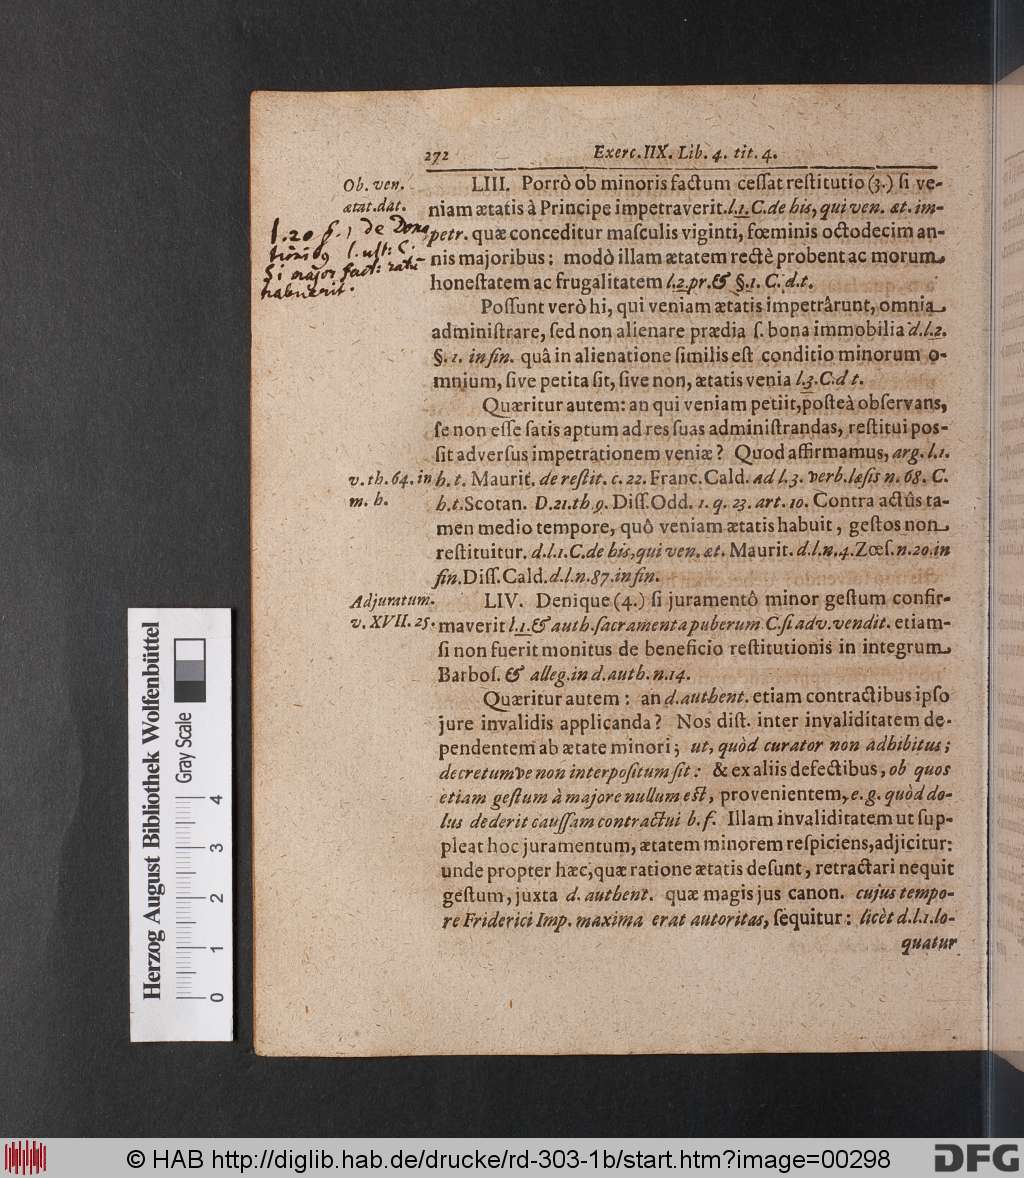 272 Exerc. IIX. Lib. 4. tit. 4.
Ob. ven.
ætat. dat.
l. 20 §. 1 de Dona
tionib9 l. ult: C.
Si major fact: rati
habuerit.
LIII. Porrò ob minoris factum ceſſat reſtitutio (3.) ſi ve-
niam ætatis à Principe impetraverit. l. 1. C. de his, qui ven. æt. im-
petr. quæ conceditur maſculis viginti, fœminis octodecim an-
nis majoribus; modò illam ætatem rectè probent ac morum
honeſtatem ac frugalitatem l. 2. pr. & §. 1. C. d. t.
Poſſunt verò hi, qui veniam ætatis impetrârunt, omnia
adminiſtrare, ſed non alienare prædia ſ. bona immobilia d. l. 2.
§. 1. in fin. quâ in alienatione ſimilis eſt conditio minorum o-
mnium, ſive petita ſit, ſive non, ætatis venia l. 3. C. d t.
Quæritur autem: an qui veniam petiit, poſteà obſervans,
ſe non eſſe ſatis aptum ad res ſuas adminiſtrandas, reſtitui poſ-
ſit adverſus impetrationem veniæ? Quod affirmamus, arg. l. 1.
v. th. 64. in
m. h.
h. t. Maurit. de reſtit. c. 22. Franc. Cald. ad l. 3. verb. læſis n. 68. C.
h. t. Scotan. D. 21. th 9. Diſſ. Odd. 1. q. 23. art. 10. Contra actûs ta-
men medio tempore, quô veniam ætatis habuit, geſtos non
reſtituitur. d. l. 1. C. de his, qui ven. æt. Maurit. d. l. n. 4. Zœſ. n. 20. in
fin. Diſſ. Cald. d. l. n. 87. in fin.
Adjuratum.
v. XVII. 25.
LIV. Denique (4.) ſi juramentô minor geſtum confir-
maverit l. 1. & auth. ſacramenta puberum C. ſi adv. vendit. etiam-
ſi non fuerit monitus de beneficio reſtitutionis in integrum
Barboſ. & alleg. in d. auth. n. 14.
Quæritur autem: an d. authent. etiam contractibus ipſo
jure invalidis applicanda? Nos diſt. inter invaliditatem de-
pendentem ab ætate minori; ut, quòd curator non adhibitus;
decretumve non interpoſitum ſit: & ex aliis defectibus, ob quos
etiam geſtum à majore nullum eſt, provenientem, e. g. quòd do-
lus dederit cauſſam contractui b. f. Illam invaliditatem ut ſup-
pleat hoc juramentum, ætatem minorem reſpiciens, adjicitur:
unde propter hæc, quæ ratione ætatis deſunt, retractari nequit
geſtum, juxta d. authent. quæ magis jus canon. cujus tempo-
re Friderici Imp. maxima erat autoritas, ſequitur: licèt d. l. 1. lo-
quatur
Herzog August Bibliothek Wolfenbüttel
Gray Scale
0 1 2 3 4
© HAB http://diglib.hab.de/drucke/rd-303-1b/start.htm?image=00298
DFG